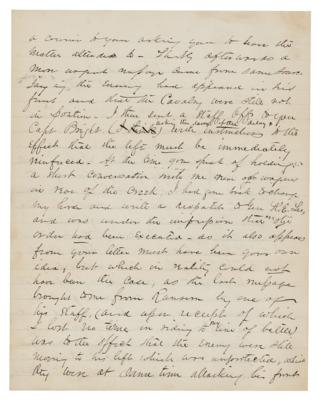 a courier to you asking you to have the
matter attended to - Shortly afterwards a
more urgent message came from same source
saying, the enemy had appeared in his
front and that the Cavalry were still not
in position. I then sent a Staff Offr to you
Capt Bright with instructions to the
effect that the left must be immediately
reinforced. At the time you speak of holding
a short conversation with me near
in rear of the Creek, I had you to change
my and write a dispatch to Gen R.E. Lee,
and was under the impression this
order had been executed - as it also appears
from your letter must have been your own
idea, but which in reality could not
have been the case, as the last message
brought to me from Ransom by one of
his Staff, (and upon receipt of which
I lost no time in riding to line of battle)
was to the effect that the enemy were still
moving to his left which was unprotected, while
they were at same time attacking his front